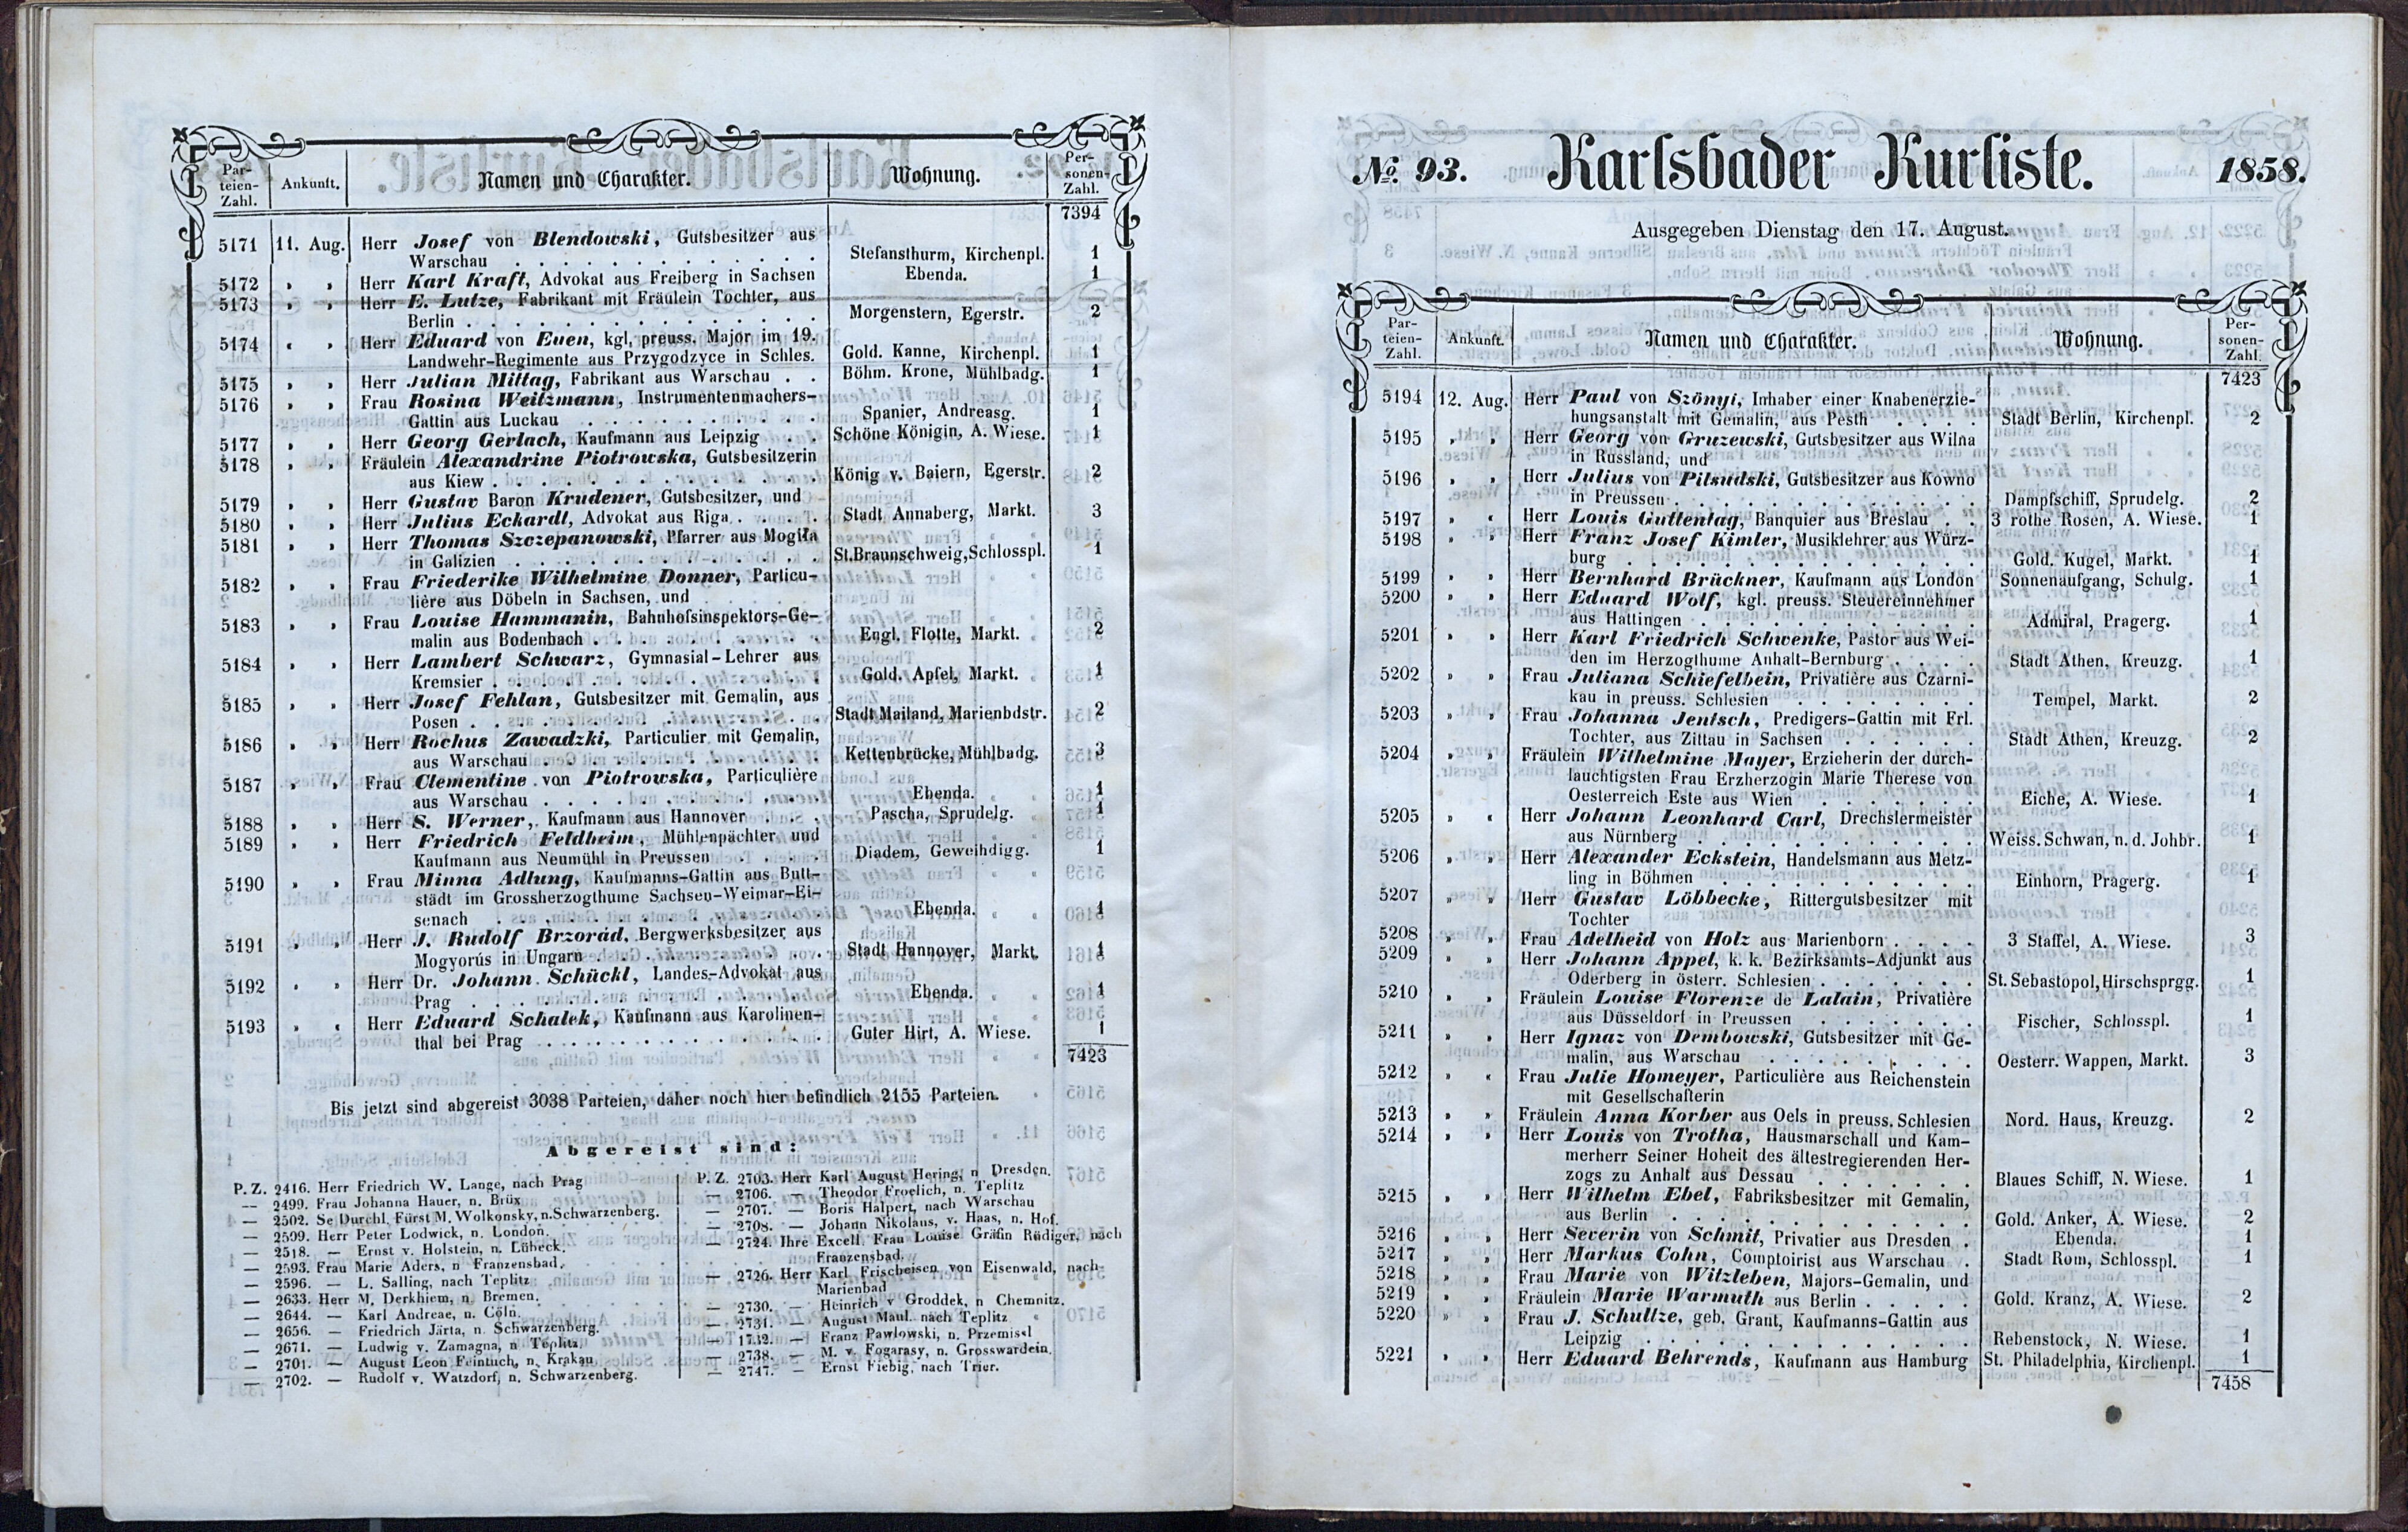 Par-
teien-
Zahl.
Ankunft.
Namen und Charakter.
Wohnung.
Per-
sonen-
Zahl.
7394
5171 11. Aug. Herr Josef von Blendowski, Gutsbesitzer aus
Warschau . . . . . Stefansthurm, Kirchenpl. 1
5172 „ „ Herr Karl Kraft, Advokat aus Freiberg in Sachsen Ebenda. 1
5173 „ „ Herr E. Lutze, Fabrikant mit Fräulein Tochter, aus
Berlin . . . . . Morgenstern, Egerstr. 2
5174 „ „ Herr Eduard von Euen, kgl, preuss. Major im 19.
Landwehr-Regimente aus Przygodzyce in Schles. Gold. Kanne, Kirchenpl. 1
5175 „ „ Herr Julian Mittag, Fabrikant aus Warschau . . Böhm. Krone, Mühlbadg. 1
5176 „ „ Frau Rosina Weitzmann, Instrumentenmachers-
Gattin aus Luckau . . . . . Spanier, Andreasg. 1
5177 „ „ Herr Georg Gerlach, Kaufmann aus Leipzig . . Schöne Königin, A. Wiese. 1
5178 „ „ Fräulein Alexandrine Piotrowska, Gutsbesitzerin
aus Kiew . . . . . König v. Baiern, Egerstr. 2
5179 „ „ Herr Gustav Baron Krudener, Gutsbesitzer, und
5180 „ „ Herr Julius Eckardt, Advokat aus Riga . . . . Stadt Annaberg, Markt. 3
5181 „ „ Herr Thomas Szczepanowski, Pfarrer aus Mogiła
in Galizien . . . . . St.Braunschweig,Schlosspl. 1
5182 „ „ Frau Friederike Wilhelmine Donner, Particu-
lière aus Döbeln in Sachsen, und
5183 „ „ Frau Louise Hammanin, Bahnhofsinspektors-Ge-
malin aus Bodenbach . . . . . Engl. Flotte, Markt. 2
5184 „ „ Herr Lambert Schwarz, Gymnasial-Lehrer aus
Kremsier . . . . . Gold. Apfel, Markt. 1
5185 „ „ Herr Josef Fehlan, Gutsbesitzer mit Gemalin, aus
Posen . . . . . Stadt Mailand, Marienbdstr. 2
5186 „ „ Herr Rochus Zawadzki, Particulier mit Gemalin,
aus Warschau . . . . . Kettenbrücke, Mühlbadg. 3
5187 „ „ Frau Clementine von Piotrowska, Particulière
aus Warschau . . . . . Ebenda. 1
5188 „ „ Herr S. Werner, Kaufmann aus Hannover . . . Pascha, Sprudelg. 1
5189 „ „ Herr Friedrich Feldheim, Mühlenpächter und
Kaufmann aus Neumühl in Preussen . . . . Diadem, Geweihdigg. 1
5190 „ „ Frau Minna Adlung, Kaufmanns-Gattin aus Butt-
städt im Grossherzogthume Sachsen-Weimar-Ei-
senach . . . . . Ebenda. 1
5191 „ „ Herr J. Rudolf Brzorád, Bergwerksbesitzer aus
Mogyorús in Ungarn . . . . . Stadt Hannover, Markt. 1
5192 „ „ Herr Dr. Johann Schückl, Landes-Advokat aus
Prag . . . . . Ebenda. 1
5193 „ „ Herr Eduard Schalek, Kaufmann aus Karolinen-
thal bei Prag . . . . . Guter Hirt, A. Wiese. 1
7423
Bis jetzt sind abgereist 3038 Parteien, daher noch hier befindlich 2155 Parteien.
Abgereist sind:
P. Z. 2416. Herr Friedrich W. Lange, nach Prag
— 2499. Frau Johanna Hauer, n. Brüx
— 2502. Se Durchl. Fürst M. Wolkonsky, n.Schwarzenberg.
— 2509. Herr Peter Lodwick, n. London.
— 2518. — Ernst v. Holstein, n. Lübeck.
— 2593. Frau Marie Aders, n Franzensbad.
— 2596. — L. Salling, nach Teplitz
— 2633. Herr M. Derkhiem, n. Bremen.
— 2644. — Karl Andreae, n. Cöln.
— 2656. — Friedrich Järta, n. Schwarzenberg.
— 2671. — Ludwig v. Zamagna, n Teplitz.
— 2701. — August Leon Feintuch, n. Krakau
— 2702. — Rudolf v. Watzdorf, n. Schwarzenberg.
P. Z. 2703. Herr Karl August Hering, n Dresden.
— 2706. — Theodor Froelich, n. Teplitz
— 2707. — Boris Halpert, nach Warschau
— 2708. — Johann Nikolaus, v. Haas, n. Hof.
— 2724. Ihre Excell. Frau Louise Gräfin Rüdiger, nach
Franzensbad.
— 2726. Herr Karl Frischeisen von Eisenwald, nach
Marienbad
— 2730. — Heinrich v Groddek, n Chemnitz.
— 2731. — August Maul. nach Teplitz
— 1732. — Franz Pawlowski, n. Przemisel
— 2738. — M. v. Fogarasy, n. Grosswardein.
— 2747. — Ernst Fiebig, nach Trier.
No. 93. Karlsbader Kurliste. 1858.
Ausgegeben Dienstag den 17. August.
Par-
teien-
Zahl.
Ankunft.
Namen und Charakter.
Wohnung.
Per-
sonen-
Zahl.
7423
5194 12. Aug. Herr Paul von Szönyi, Inhaber einer Knabenerzie-
hungsanstalt mit Gemalin, aus Pesth . . . . Stadt Berlin, Kirchenpl. 2
5195 „ „ Herr Georg von Gruzewski, Gutsbesitzer aus Wilna
in Russland, und
5196 „ „ Herr Julius von Pilsudski, Gutsbesitzer aus Kowno
in Preussen . . . . . Dampfschiff, Sprudelg. 2
5197 „ „ Herr Louis Guttentag, Banquier aus Breslau . . 3 rothe Rosen, A. Wiese. 1
5198 „ „ Herr Franz Josef Kimler, Musiklehrer aus Würz-
burg . . . . . Gold. Kugel, Markt. 1
5199 „ „ Herr Bernhard Brückner, Kaufmann aus London Sonnenaufgang, Schulg. 1
5200 „ „ Herr Eduard Wolf, kgl. preuss. Steuereinnehmer
aus Hattingen . . . . . Admiral, Pragerg. 1
5201 „ „ Herr Karl Friedrich Schwenke, Pastor aus Wei-
den im Herzogthume Anhalt-Bernburg . . . . Stadt Athen, Kreuzg. 1
5202 „ „ Frau Juliana Schiefelbein, Privatière aus Czarni-
kau in preuss. Schlesien . . . . . Tempel, Markt. 2
5203 „ „ Frau Johanna Jentsch, Predigers-Gattin mit Frl.
Tochter, aus Zittau in Sachsen . . . . . Stadt Athen, Kreuzg. 2
5204 „ „ Fräulein Wilhelmine Mayer, Erzieherin der durch-
lauchtigsten Frau Erzherzogin Marie Therese von
Oesterreich Este aus Wien . . . . . Eiche, A. Wiese. 1
5205 „ „ Herr Johann Leonhard Carl, Drechslermeister
aus Nürnberg . . . . . Weiss. Schwan, n. d. Johbr. 1
5206 „ „ Herr Alexander Eckstein, Handelsmann aus Metz-
ling in Böhmen . . . . . Einhorn, Pragerg. 1
5207 „ „ Herr Gustav Löbbecke, Rittergutsbesitzer mit
Tochter
5208 „ „ Frau Adelheid von Holz aus Marienborn . . . . 3 Staffel, A. Wiese. 3
5209 „ „ Herr Johann Appel, k. k. Bezirksamts-Adjunkt aus
Oderberg in österr. Schlesien . . . . . St. Sebastopol, Hirschsprgg. 1
5210 „ „ Fräulein Louise Florenze de Lalain, Privatière
aus Düsseldorf in Preussen . . . . . Fischer, Schlosspl. 1
5211 „ „ Herr Ignaz von Dembowski, Gutsbesitzer mit Ge-
malin, aus Warschau . . . . . Oesterr. Wappen, Markt. 3
5212 „ „ Frau Julie Homeyer, Particulière aus Reichenstein
mit Gesellschafterin
5213 „ „ Fräulein Anna Korber aus Oels in preuss. Schlesien Nord. Haus, Kreuzg. 2
5214 „ „ Herr Louis von Trotha, Hausmarschall und Kam-
merherr Seiner Hoheit des ältestregierenden Her-
zogs zu Anhalt aus Dessau . . . . . Blaues Schiff, N. Wiese. 1
5215 „ „ Herr Wilhelm Ebel, Fabriksbesitzer mit Gemalin,
aus Berlin . . . . . Gold. Anker, A. Wiese. 2
5216 „ „ Herr Severin von Schmit, Privatier aus Dresden . Ebenda. 1
5217 „ „ Herr Markus Cohn, Comptoirist aus Warschau . Stadt Rom, Schlosspl. 1
5218 „ „ Frau Marie von Witzleben, Majors-Gemalin, und
5219 „ „ Fräulein Marie Warmuth aus Berlin . . . . . Gold. Kranz, A. Wiese. 2
5220 „ „ Frau J. Schultze, geb. Grant, Kaufmanns-Gattin aus
Leipzig . . . . . Rebenstock, N. Wiese. 1
5221 „ „ Herr Eduard Behrends, Kaufmann aus Hamburg St. Philadelphia, Kirchenpl. 1
7458